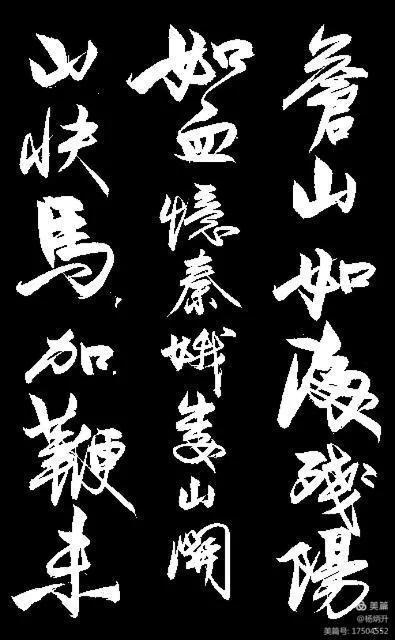 蒼山如海殘陽
如血憶秦娥婁山關
山快馬加鞭未
美篇
@杨炳升
美篇号: 17504552